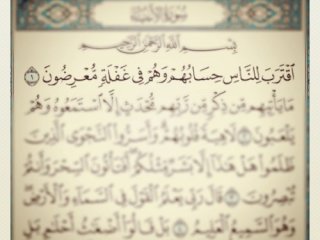 سُورَةُ الأَنبِيَاءِ
بِسْمِ اللَّهِ الرَّحْمَٰنِ الرَّحِيمِ
ٱقْتَرَبَ لِلنَّاسِ حِسَابُهُمْ وَهُمْ فِى غَفْلَةٍ مُّعْرِضُونَ ١
مَا يَأْتِيهِم مِّن ذِكْرٍ مِّن رَّبِّهِم مُّحْدَثٍ إِلَّا ٱسْتَمَعُوهُ وَهُمْ
يَلْعَبُونَ ٢ لَاهِيَةً قُلُوبُهُمْ وَأَسَرُّوا۟ ٱلنَّجْوَى ٱلَّذِينَ
ظَلَمُوا۟ هَلْ هَٰذَآ إِلَّا بَشَرٌ مِّثْلُكُمْ أَفَتَأْتُونَ ٱلسِّحْرَ وَأَنتُمْ
تُبْصِرُونَ ٣ قَالَ رَبِّى يَعْلَمُ ٱلْقَوْلَ فِى ٱلسَّمَآءِ وَٱلْأَرْضِ
وَهُوَ ٱلسَّمِيعُ ٱلْعَلِيمُ ٤ بَلْ قَالُوٓا۟ أَضْغَٰثُ أَحْلَٰمٍ بَلِ